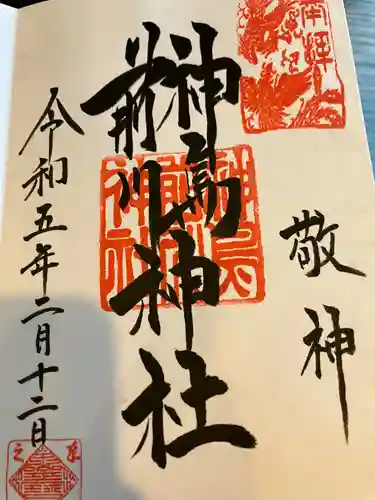 敬神
神鳥前川神社
令和五年二月十二日